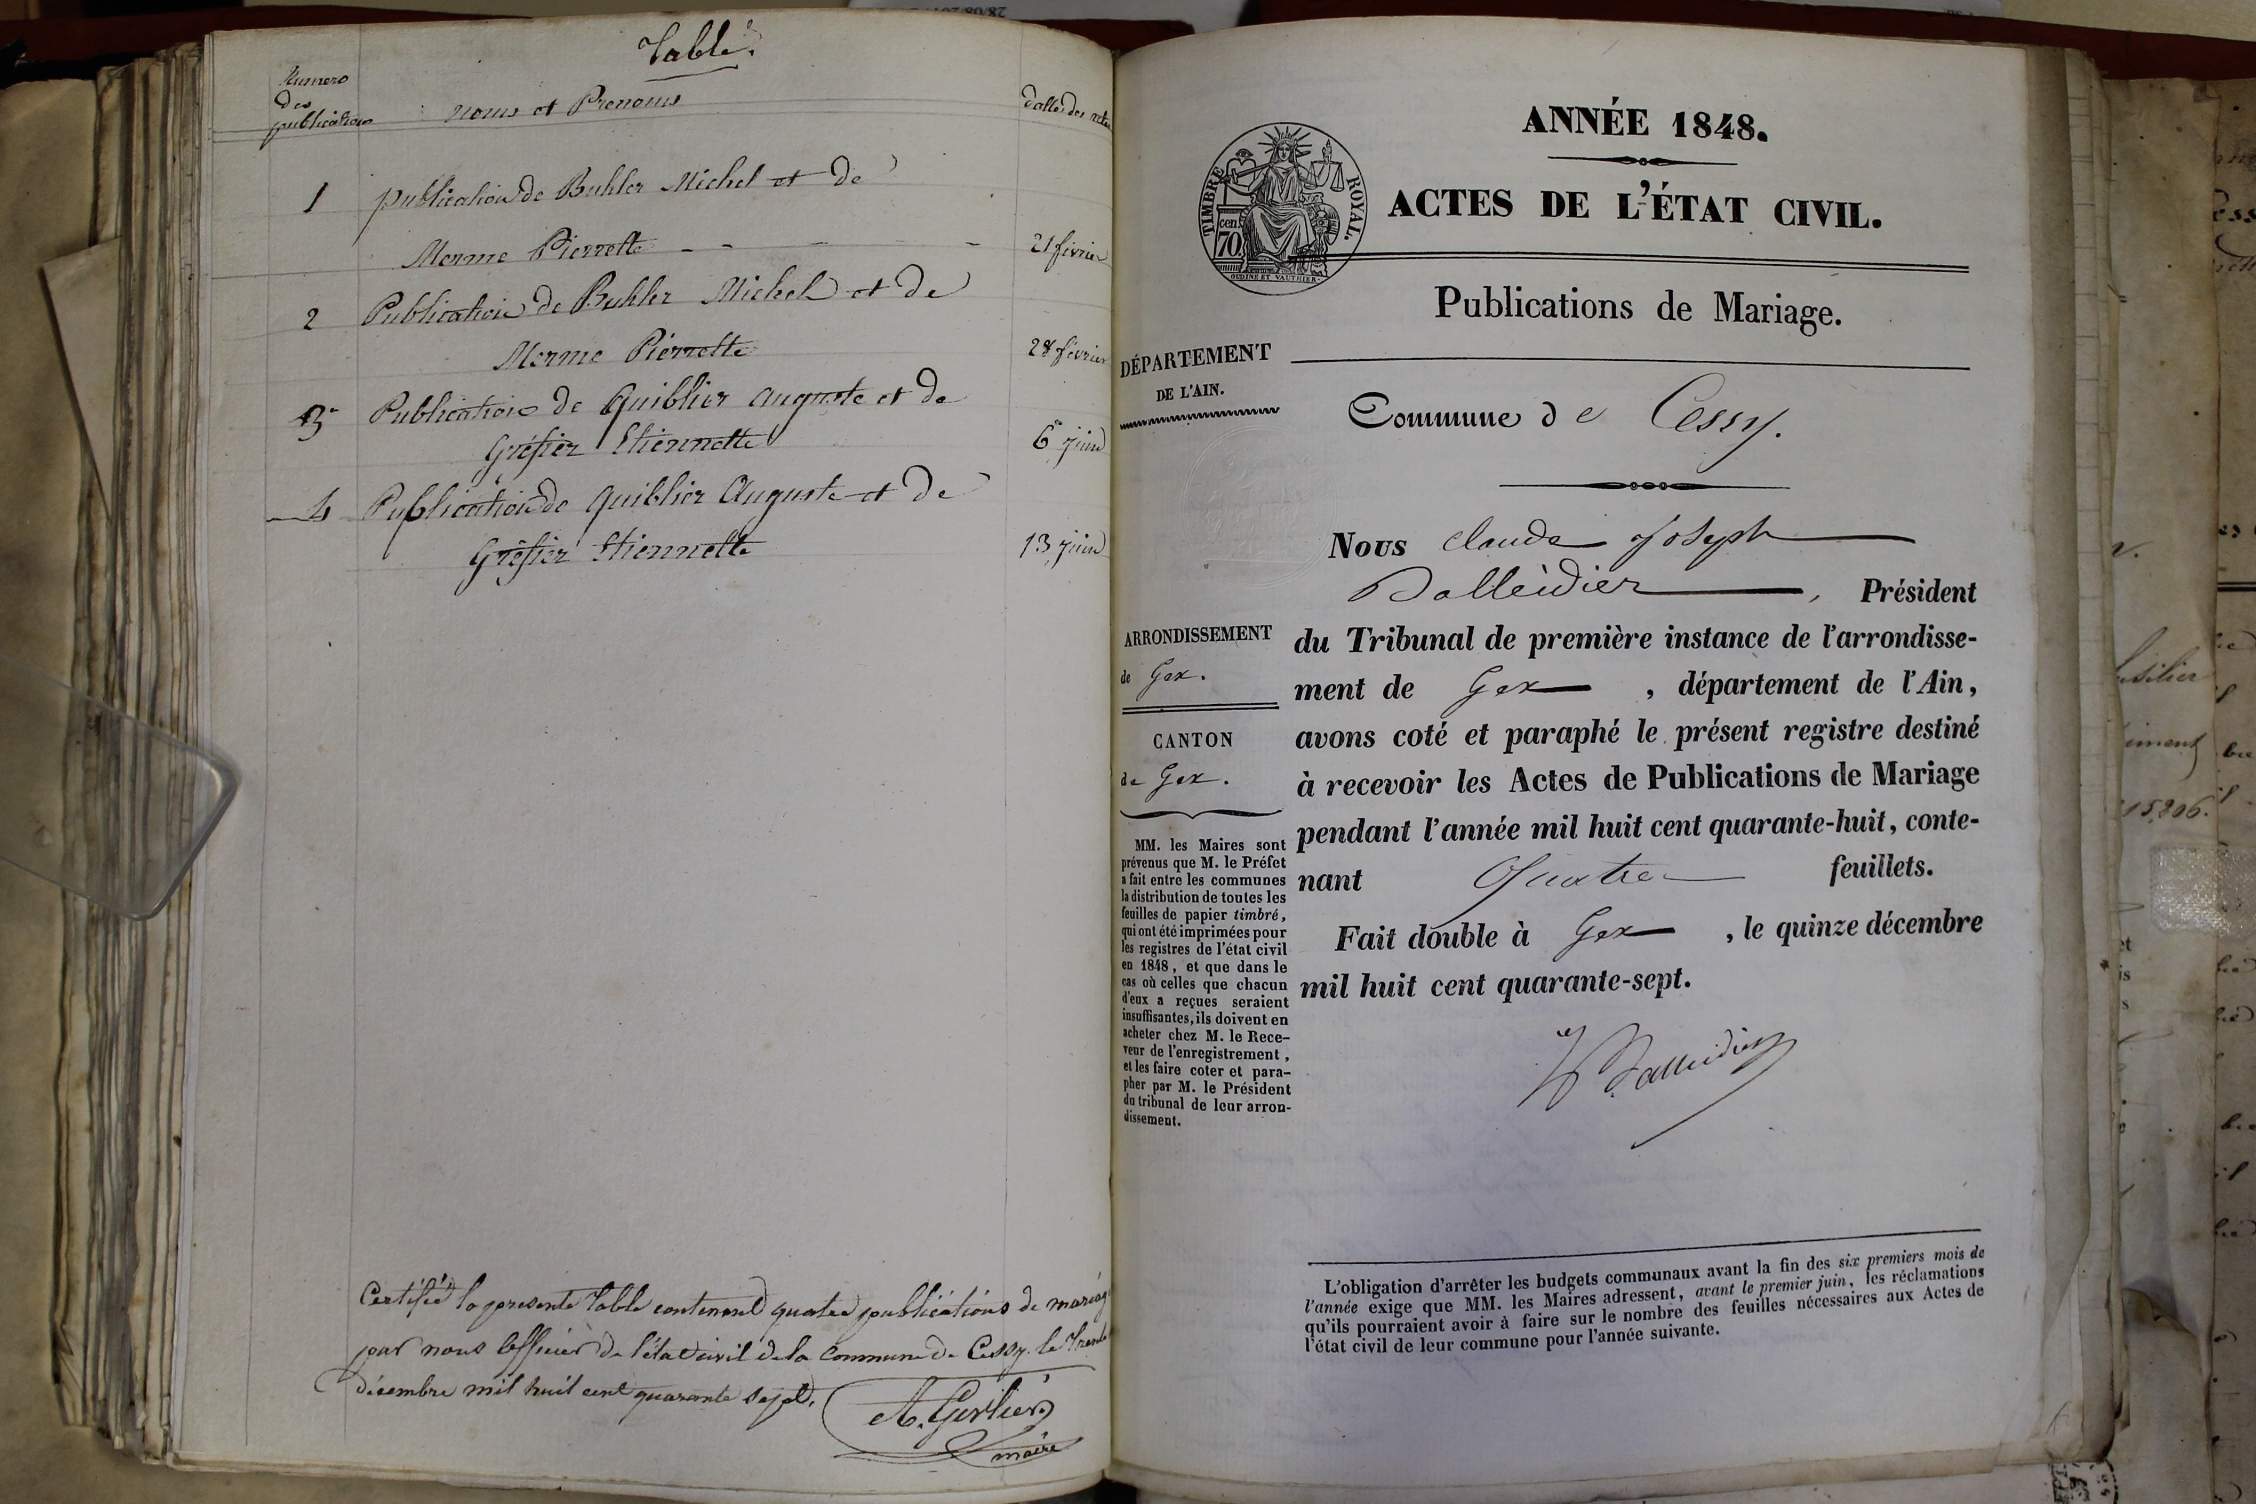 Table.
Numero
des
publications
noms et Prenoms
dattes des actes
1 publication de Buhler Michel et de
Merme Pierrette - - - - 21 fevrier
2 Publication de Buhler Michel et de
Merme Pierrette 28 fevrier
3 Publication de Quiblier Auguste et de
Gréfier Etiennette 6 juin
4 Publication de Quiblier Auguste et de
Gréfier Etiennette 13 juin
Certifié la presente table contenant quatre publications de mariage
par nous officier de l'état civil de la Commune de Cessy le trente
décembre mil huit cent quarante sept.
A. Gerlier
maire
ANNÉE 1848.
ACTES DE L'ÉTAT CIVIL.
TIMBRE ROYAL.
cen.
70
OUDINE ET VAUTHIER
Publications de Mariage.
DÉPARTEMENT
DE L'AIN.
Commune de Cessy.
Nous Claude Joseph
Balleidier, Président
du Tribunal de première instance de l'arrondisse-
ment de Gex, département de l'Ain,
avons coté et paraphé le présent registre destiné
à recevoir les Actes de Publications de Mariage
pendant l'année mil huit cent quarante-huit, conte-
nant Quatre feuillets.
Fait double à Gex, le quinze décembre
mil huit cent quarante-sept.
Balleidier
ARRONDISSEMENT
de Gex.
CANTON
de Gex.
MM. les Maires sont
prévenus que M. le Préfet
a fait entre les communes
la distribution de toutes les
feuilles de papier timbré,
qui ont été imprimées pour
les registres de l'état civil
en 1848, et que dans le
cas où celles que chacun
d'eux a reçues seraient
insuffisantes, ils doivent en
acheter chez M. le Rece-
veur de l'enregistrement,
et les faire coter et para-
pher par M. le Président
du tribunal de leur arron-
dissement.
L'obligation d'arrêter les budgets communaux avant la fin des six premiers mois de
l'année exige que MM. les Maires adressent, avant le premier juin, les réclamations
qu'ils pourraient avoir à faire sur le nombre des feuilles nécessaires aux Actes de
l'état civil de leur commune pour l'année suivante.